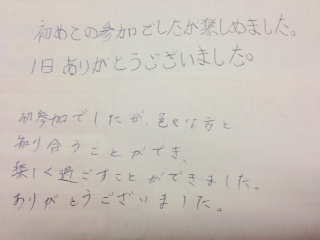 初めての参加でしたが楽しめました。
1日ありがとうございました。
初参加でしたが、色々な方と
知り合うことができ、
楽しく過ごすことができました。
ありがとうございました。